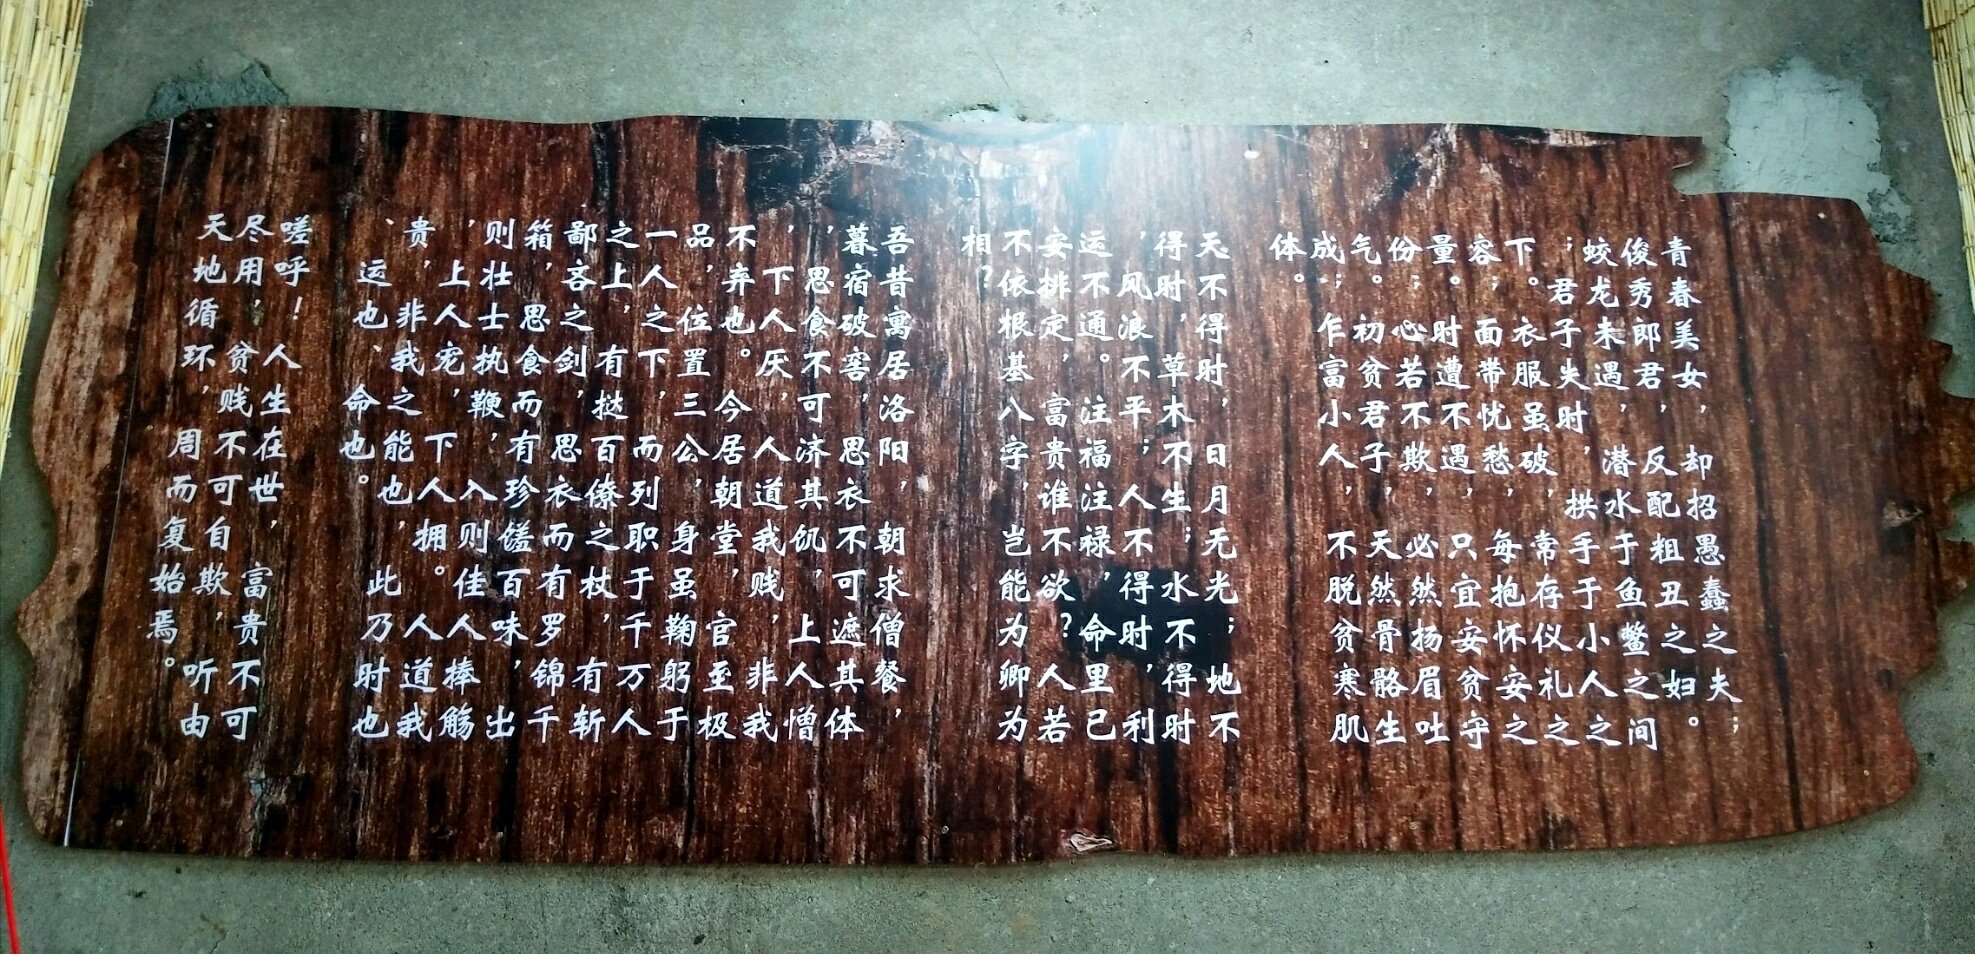 青春美女，却招愚蠢之夫；
俊秀郎君，反配粗丑之妇。
蛟龙未遇，潜水于鱼鳖之间
；君子失时，拱手于小人之
下。衣服虽破，常存仪礼之
容；面带忧愁，每抱怀安之
量。时遭不遇，只宜安贫守
份；心若不欺，必然扬眉吐
气。初贫君子，天然骨骼生
成；乍富小人，不脱贫寒肌
体。
天不得时，日月无光；地不
得时，草木不生；水不得时
，风浪不平；人不得时，利
运不通。注福注禄，命里已
安排定，富贵谁不欲？人若
不依根基八字，岂能为卿为
相？
吾昔寓居洛阳，朝求僧餐，
暮宿破窖，思衣不可遮其体
，思食不可济其饥，上人憎
，下人厌，人道我贱，非我
不弃也。今居朝堂，官至极
品，位置三公，身虽鞠躬于
一人之下，而列职于千万人
之上，有挞百僚之杖，有斩
鄙吝之剑，思衣而有罗锦千
箱，思食而有珍馐百味，出
则壮士执鞭，入则佳人棒觞
，上人宠，下人拥。人道我
贵，非我之能也，此乃时也
、运也、命也。
嗟呼！人生在世，富贵不可
尽用，贫贱不可自欺，听由
天地循环，周而复始焉。